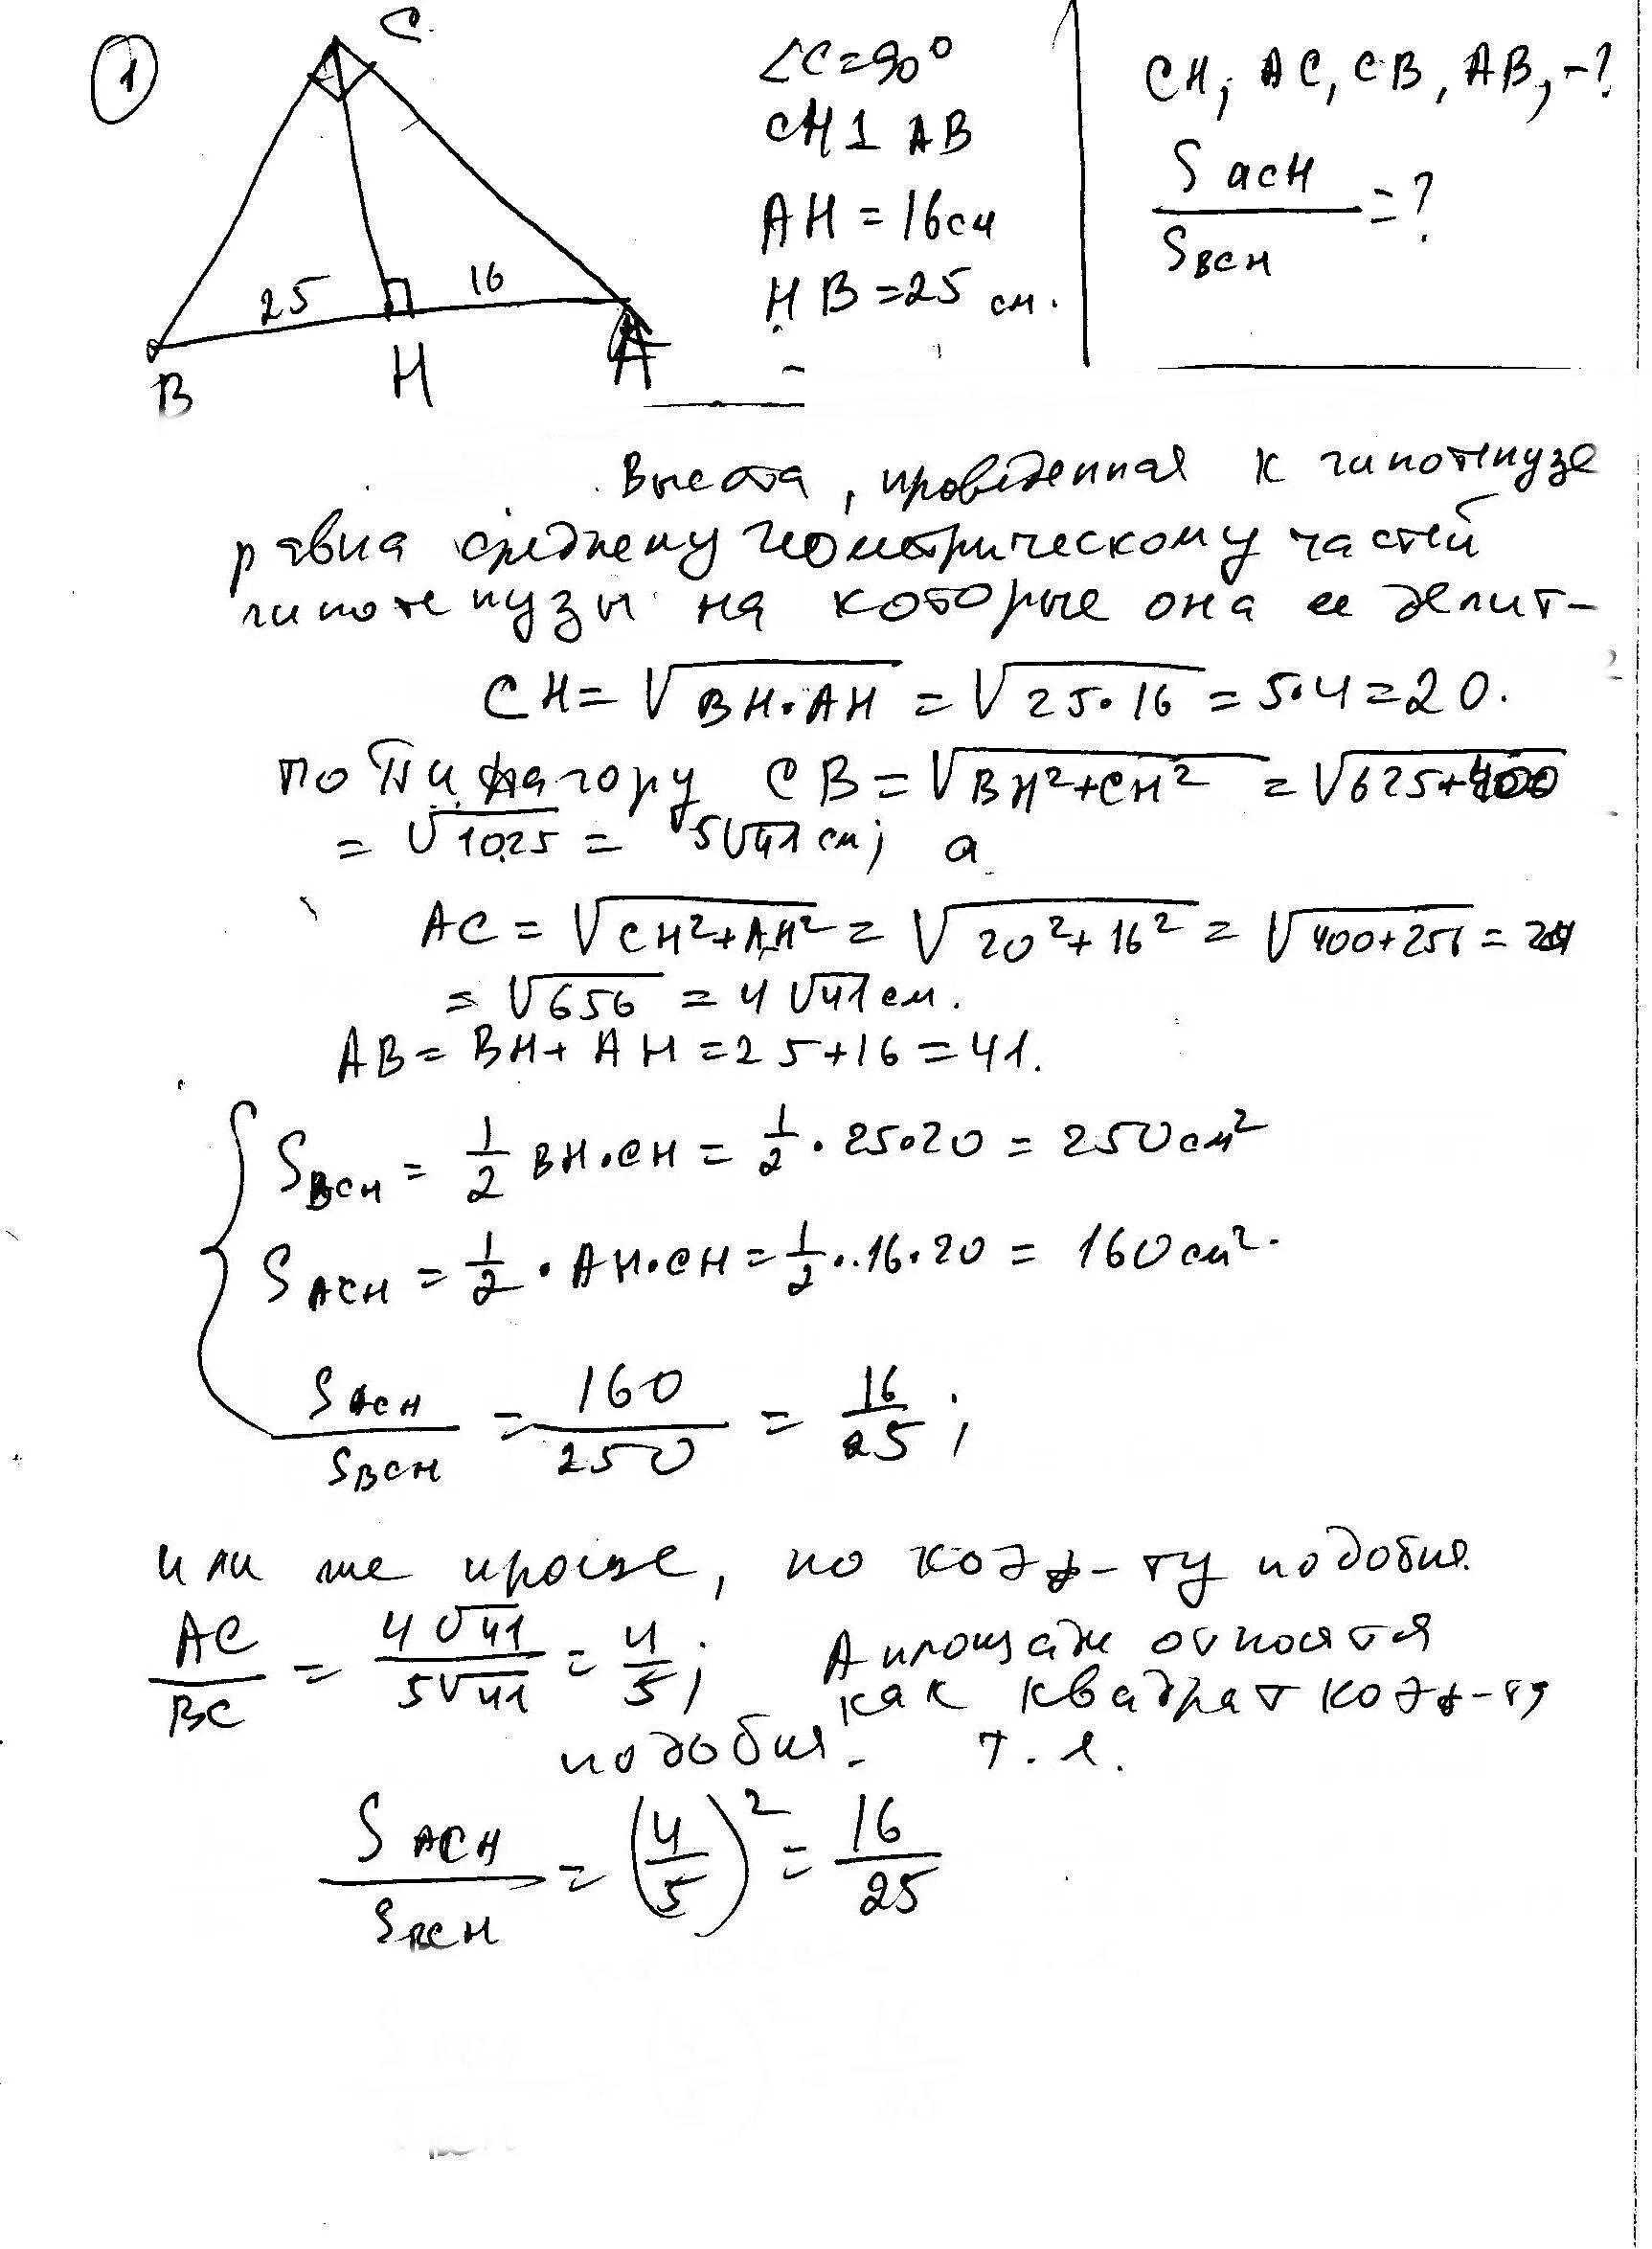 1
C
25
16
B
H
A
∠C=90°
CH⊥AB
AH=16см
HB=25 см.
CH; AC, CB, AB, -?
S acH / S BCH = ?
Высота, проведенная к гипотенузе
равна среднему геометрическому частей
гипотенузы на которые она ее делит-
CH = √(BH·AH) = √(25·16) = 5·4 = 20.
по Пифагору CB = √(BH²+CH²) = √(625+400)
= √1025 = 5√41 см; а
AC = √(CH²+AH²) = √(20²+16²) = √(400+256) =
= √656 = 4√41 см.
AB = BH + AH = 25+16 = 41.
S BCH = 1/2 BH·CH = 1/2 · 25·20 = 250 см²
S ACH = 1/2 · AH·CH = 1/2 ·.16·20 = 160 см².
S ACH / S BCH = 160/250 = 16/25 ;
или же проще, по коэф-ту подобия.
AC/BC = 4√41 / 5√41 = 4/5; А площади относятся
как квадрат коэф-та
подобия. т.е.
S ACH / S BCH = (4/5)² = 16/25